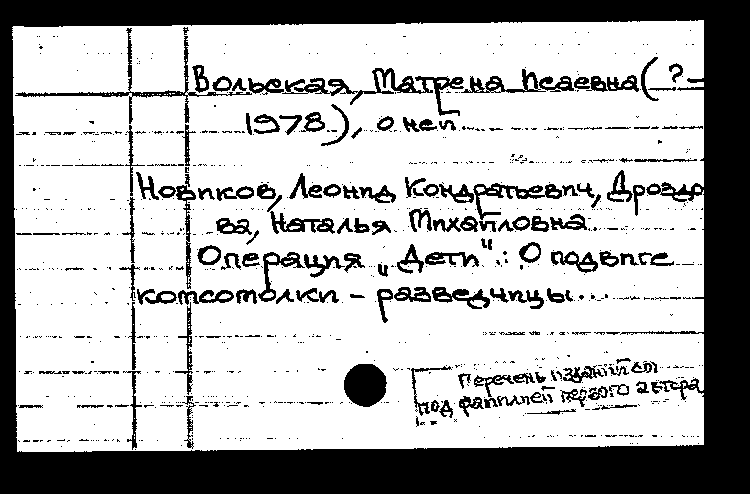 Вольская, Матрена Исаевна ( ? –
1978), о ней.
Новиков, Леонид Кондратьевич, Дроздо
ва, Наталья Михайловна.
Операция „Дети“.: О подвиге
комсомолки – разведчицы...
Перечень изданий см
под фамилией первого автора